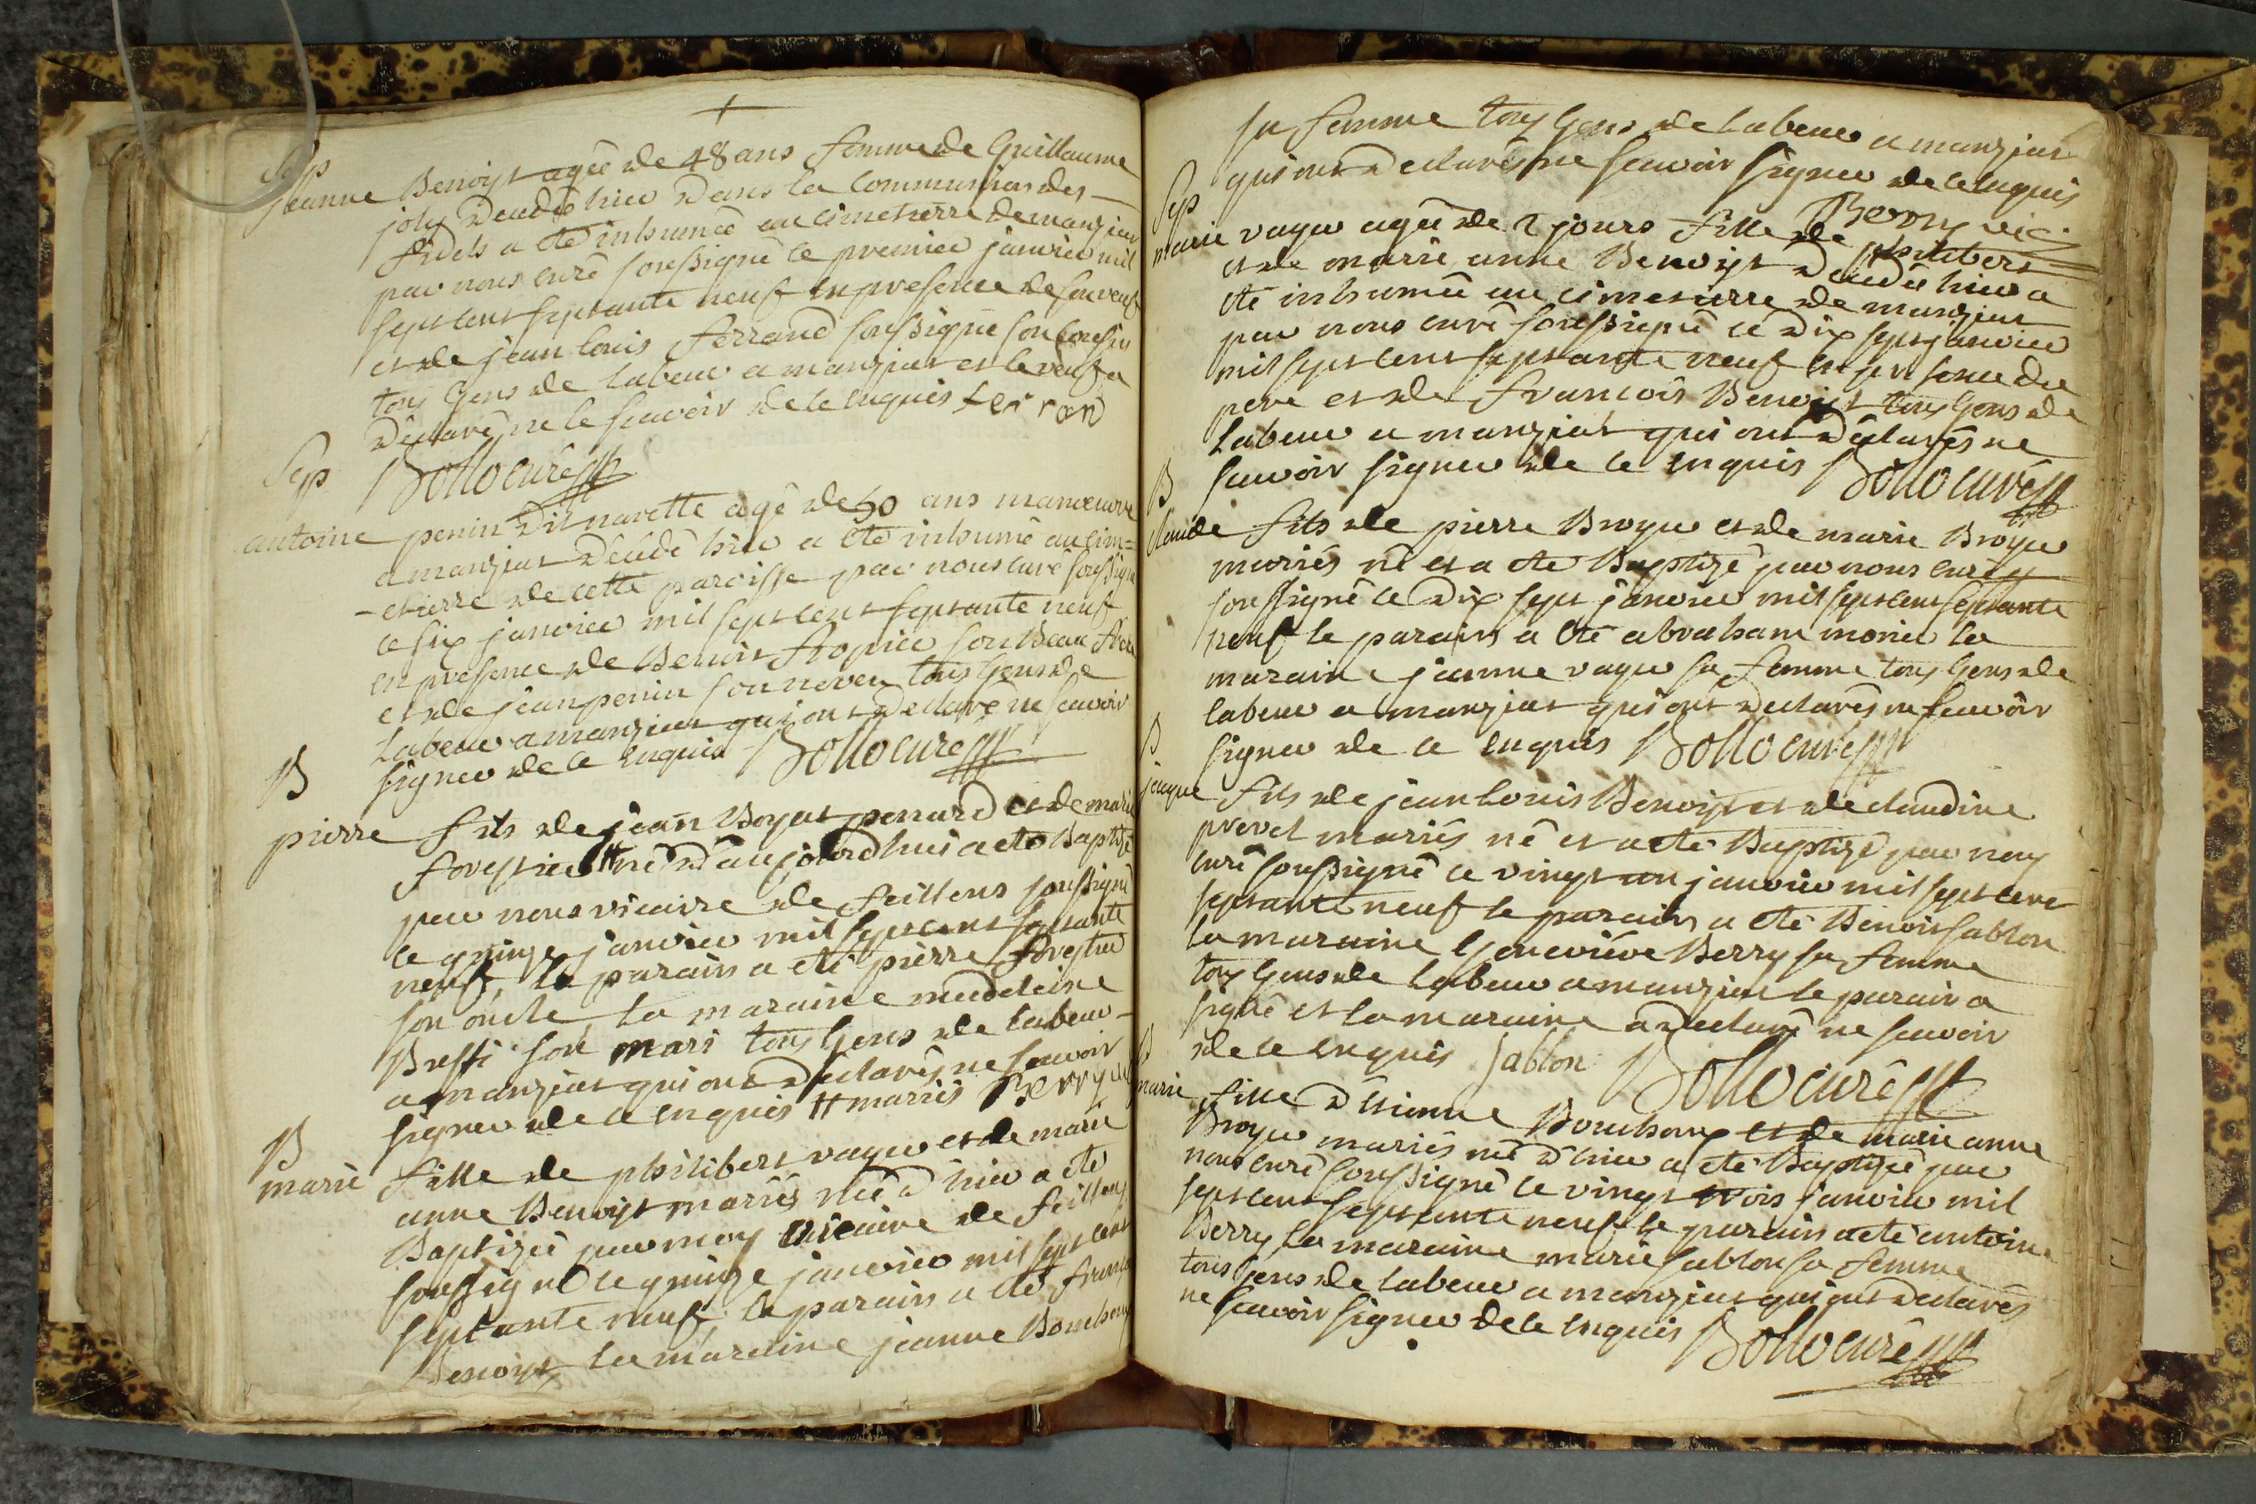 Sep
jeanne Benoist agée de 48 ans femme de Guillaume
joly decedé hier dans la Communion des
fidels a eté inhumée au cimetierre de manziat
par nous curé soussigné le premier janvier mil
sept cent septante neuf en presence de son veuf
et de jean louis ferrand soussigné son cousin
tous Gens de labeur a manziat et le veuf a
declaré ne le scavoir de ce enquis ferrand
Sep Bollo curé
antoine penin dit navette agé de 50 ans manoeuvre
a manziat decedé hier a eté inhumé au cim=
-etierre de cette paroisse par nous curé soussigné
ce six janvier mil sept cent septante neuf
en presence de Benoit son Beau frere
et de jean penin son neveu tous Gens de
labeur a manziat qui ont declaré ne scavoir
B signer de ce enquis Bollo curé
pierre fils de jean Boyat penard et de marie
forestier # né d'aujourdhui a eté Baptizé
par nous vicaire de feillens soussigné
le quinze janvier mil sept cent septante
neuf, le parain a eté pierre forestier
son oncle la maraine madeleine
Bressi son mari tous Gens de labeur
a manziat qui ont declarés ne scavoir
signer de ce enquis # mariés Berry vic
B
marie fille de philibert vayer et de marie
anne Benoist mariés née d'hier a eté
Baptizée par moy vicaire de feillens
soussigné le quinze janvier mil sept cent
septante neuf, le parain a eté francois
Benoist la maraine jeanne Bouchoux
sa femme tous Gens de labeur a manziat
qui ont declarés ne scavoir signer de ce enquis
Sep Berry vic
marie vayer agée de 2 jours fille de philibert
et de marie anne Benoist decedée hier a
eté inhumée au cimetierre de manziat
par nous curé soussigné ce dix sept janvier
mil sept cent septante neuf en presence du
pere et de francois Benoist tous Gens de
labeur a manziat qui ont declarés ne
B scavoir signer de ce enquis Bollo curé
claude fils de pierre Broyer et de marie Broyer
mariés né et a eté Baptizé par nous curé
soussigné le dix sept janvier mil sept cent septante
neuf le parain a eté abraham monier la
maraine jeanne vayer sa femme tous Gens de
labeur a manziat qui ont declarés ne scavoir
B signer de ce enquis Bollo curé
jaque fils de jean louis Benoist et de claudine
prevel mariés né et a eté Baptizé par nous
curé soussigné ce vingt un janvier mil sept cent
septante neuf le parain a eté Benoit sablon
la maraine Genevieve Berry sa femme
tous Gens de labeur a manziat le parain a
signé et la maraine a declaré ne scavoir
B de ce enquis Sablon Bollo curé
marie fille d'etienne Bouchoux et de marie anne
Broyer mariés née d'hier a eté Baptizée par
nous curé soussigné le vingt trois janvier mil
sept cent septante neuf le parain a eté antoine
Berry la maraine marie sablon sa femme
tous Gens de labeur a manziat qui ont declarés
ne scavoir signer de ce enquis Bollo curé